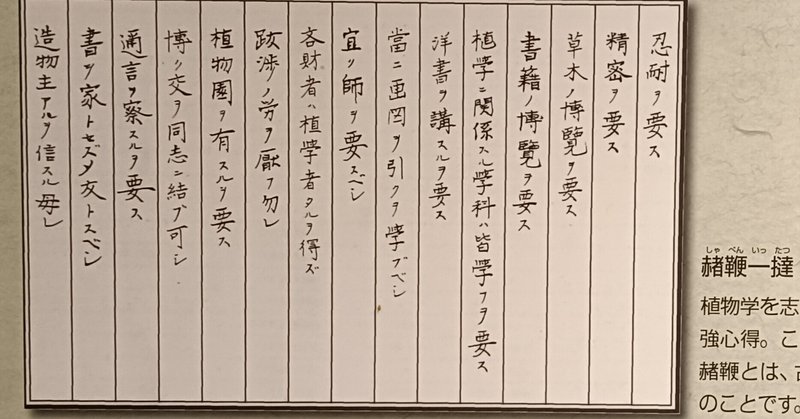 忍耐ヲ要ス
精密ヲ要ス
草木ノ博覽ヲ要ス
書籍ノ博覽ヲ要ス
植學ニ関係スル學科ハ皆學フヲ要ス
洋書ヲ講スルヲ要ス
當ニ画図ヲ引クヲ學ブベシ
宜ク師ヲ要スベシ
吝財者ハ植學者タルヲ得ズ
跋渉ノ労ヲ厭フ勿レ
植物園ヲ有スルヲ要ス
博ク交ヲ同志ニ結ブ可シ
邇言ヲ察スルヲ要ス
書ヲ家トセズメ友トスベシ
造物主アルヲ信スル毋レ
しゃ べん いっ たつ
赭鞭一撻
植物学を志
強心得。こ
赭鞭とは、古
のことです。